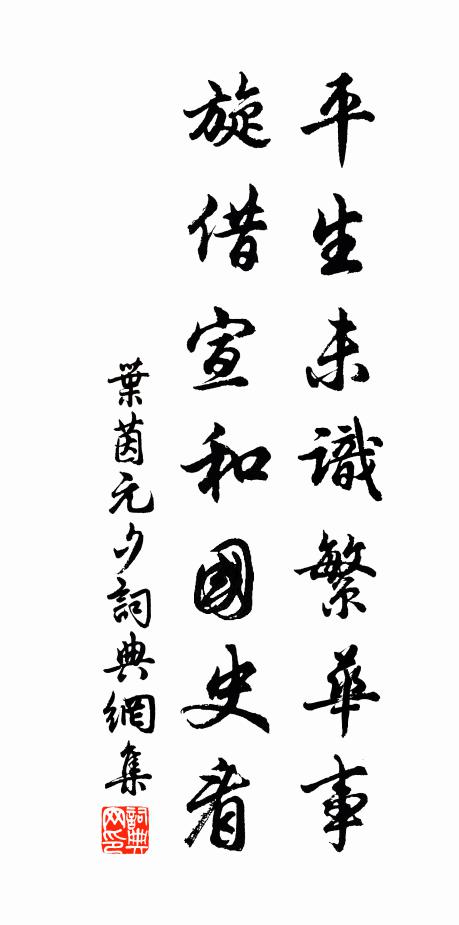 平生未識繁華事
旋借宣和國史看
葉茵元夕詞典網集
詞典網印